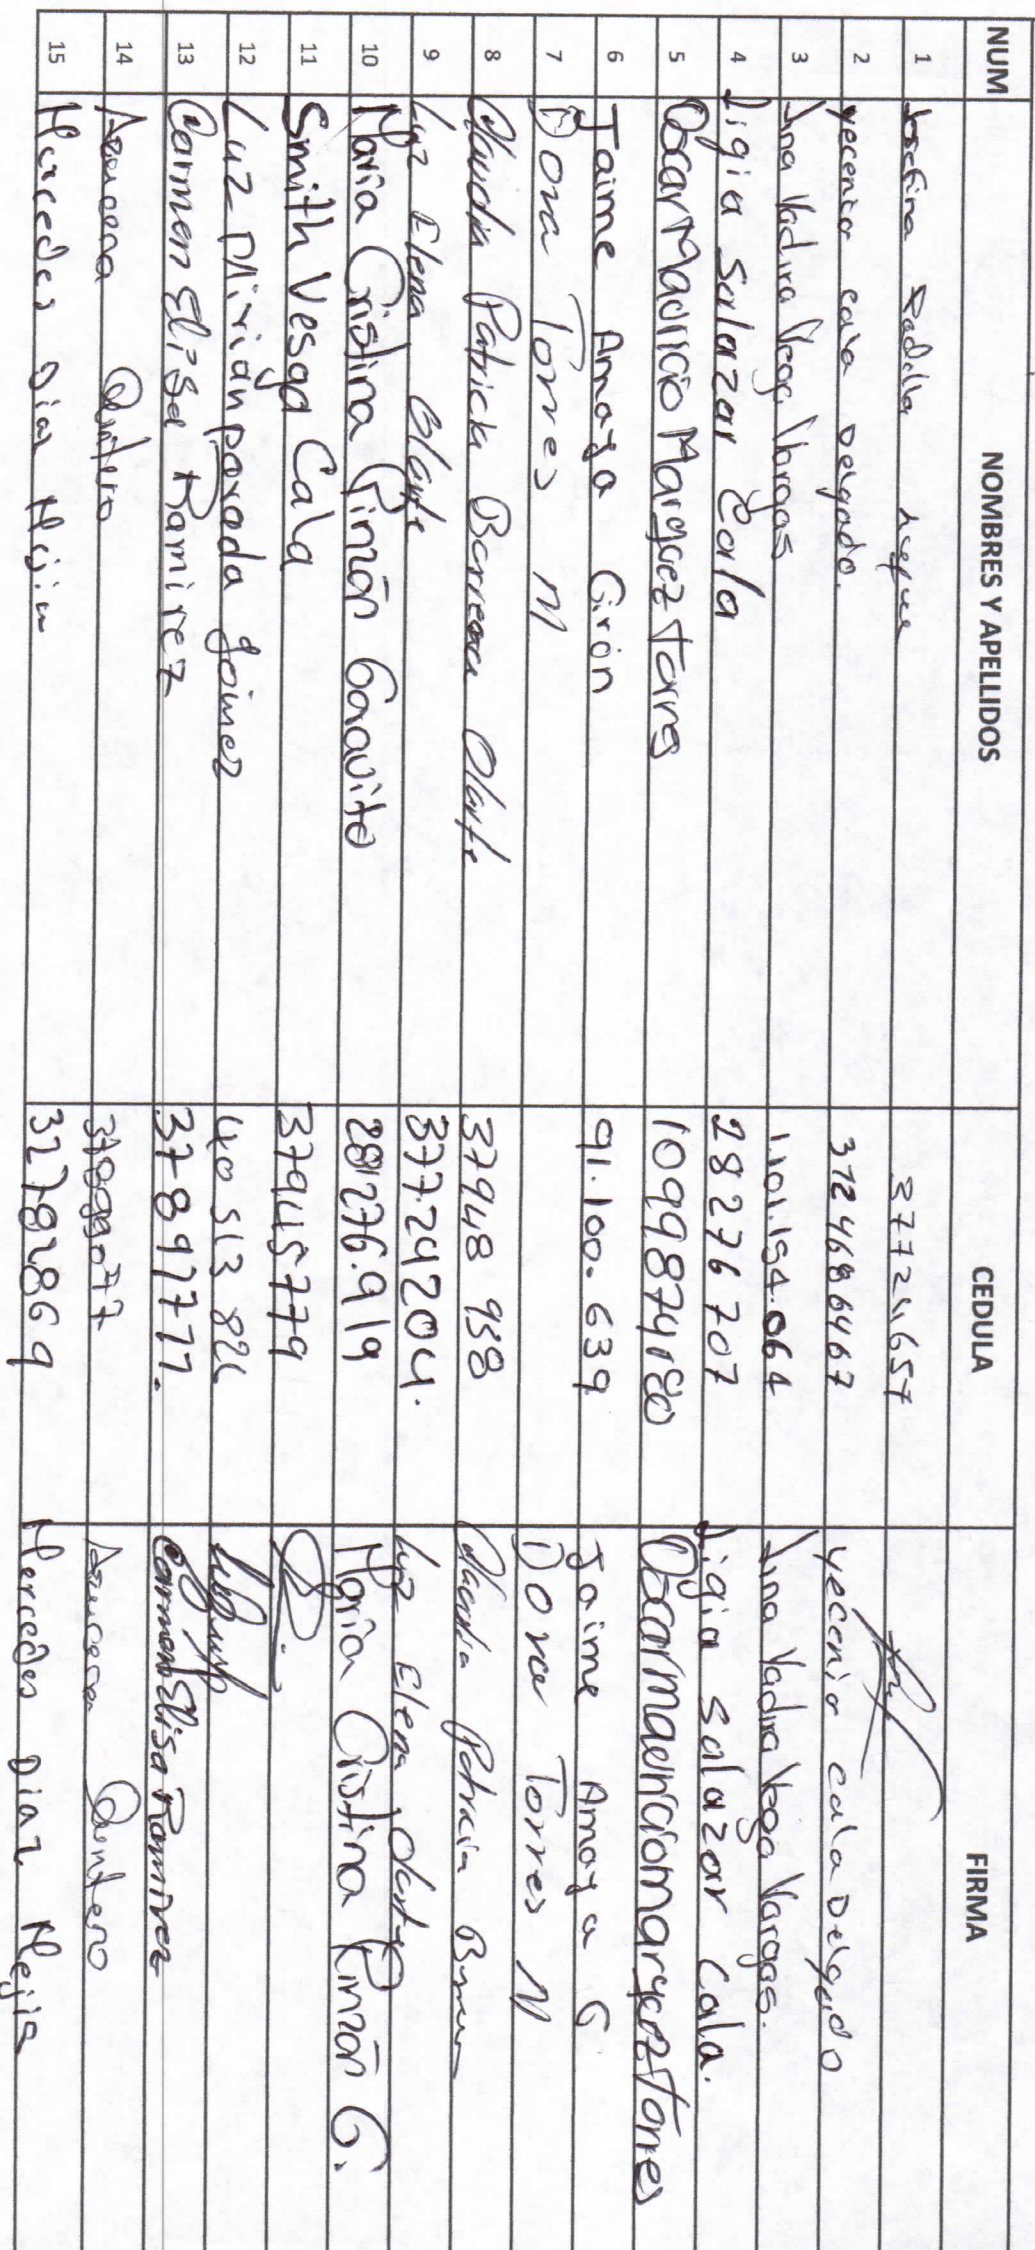 NUM NOMBRES Y APELLIDOS CEDULA FIRMA
1 Josefina Padilla 37724657
2 Yecenia cala Delgado. 37246866467 Yecenia cala Delgado
3 Ana Yadira Vega Vargas 1.101.154.064 Ana Yadira Vega Vargas.
4 Ligia Salazar Cala 28276707 Ligia Salazar Cala.
5 Oscar Mauricio Marquez Torres Oscarmauriciomarquez Torres
6 Jaime Amaya Girón 91.100.639 Jaime Amaya G
7 Dora Torres N Dora Torres N
8 Claudia Patricia Barrera Olarte 37948 938 Claudia Patricia
9 Luz Elena Olarte 37724204. Luz Elena Olarte
10 María Cristina Pinzón Garavito 28'276.919 María Cristina Pinzón G.
11 Smith Vesga Cala 37945779
12 Luz Mirián parada Gómez 40 513 824
13 Carmen Elisa Ramirez 37897777. Carmen Elisa Ramirez
14 Azucena Quintero Azucena Quintero
15 Mercedes Diaz Mejia 32782869 Mercedes Diaz Mejia